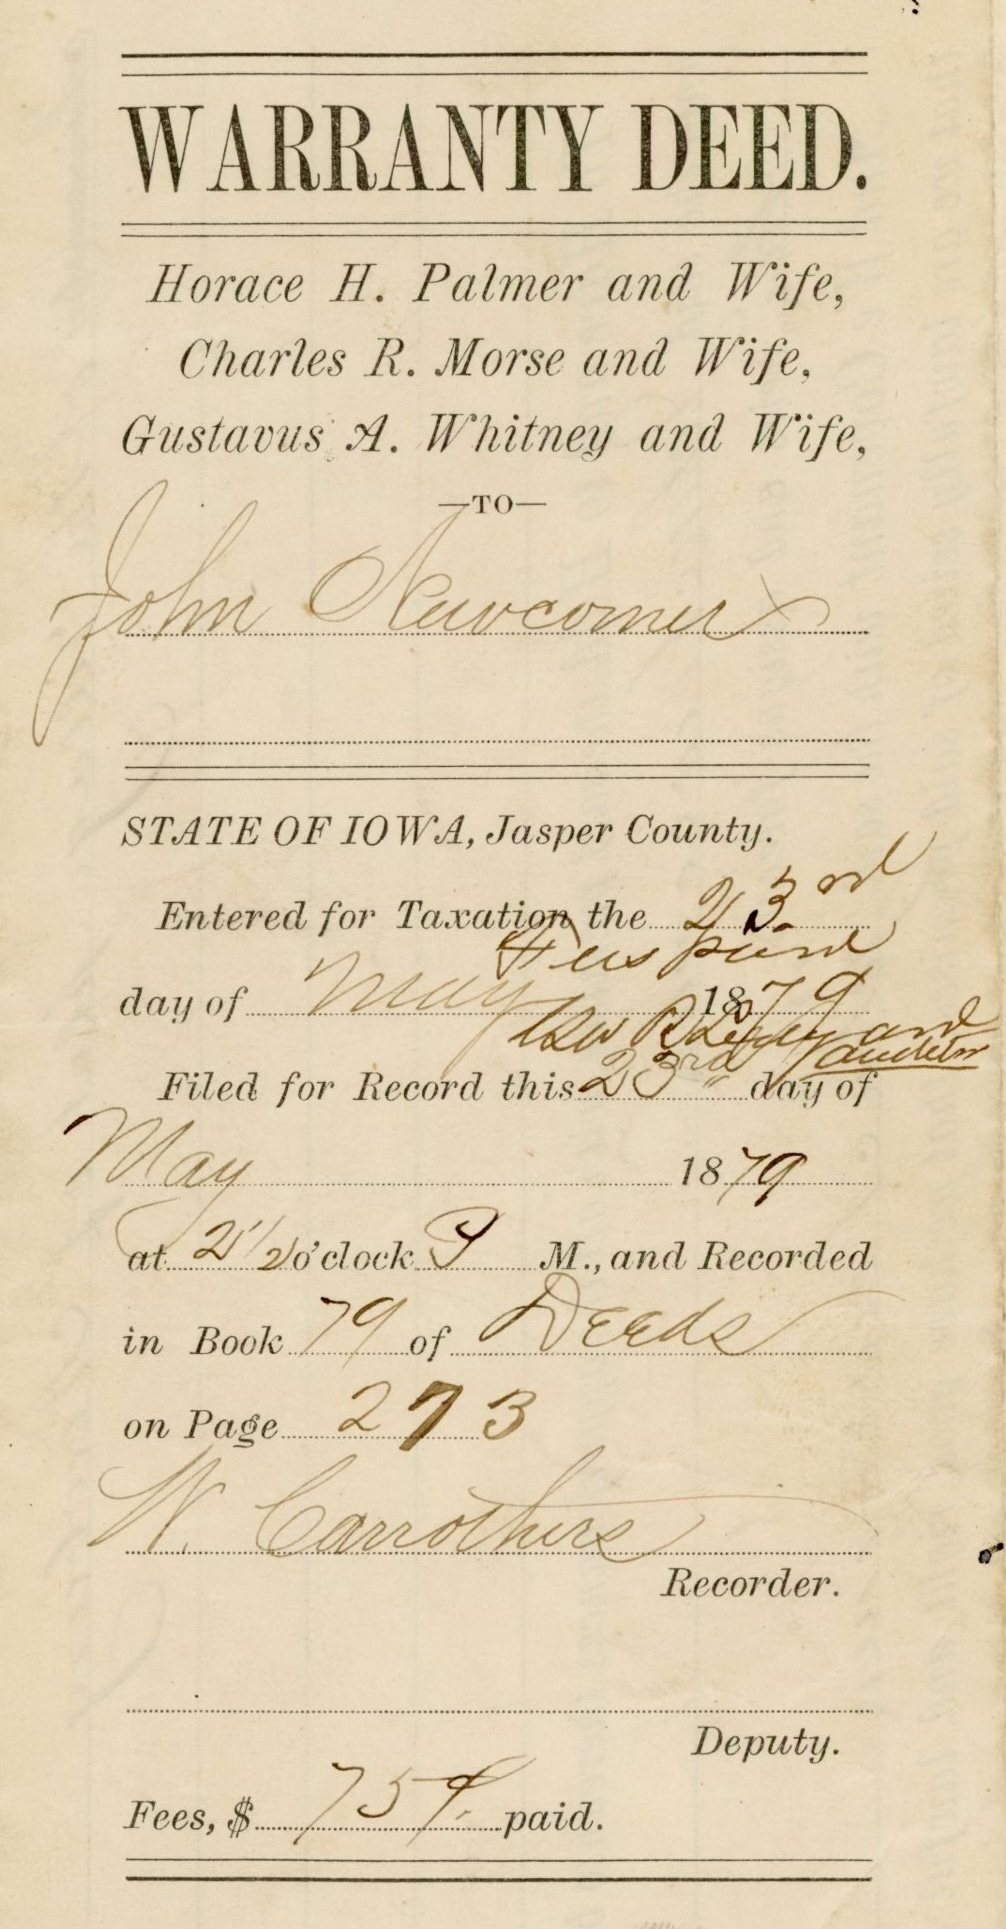 WARRANTY DEED.
Horace H. Palmer and Wife,
Charles R. Morse and Wife,
Gustavus A. Whitney and Wife,
—TO—
John Newcomer
STATE OF IOWA, Jasper County.
Entered for Taxation the 23rd
Fees paid
day of May 1879
Auditor
Filed for Record this 23rd day of
May 1879
at 2 1/2 o'clock P M., and Recorded
in Book 79 of Deeds
on Page 273
W. Carrothers
Recorder.
Deputy.
Fees, $ 75¢ paid.